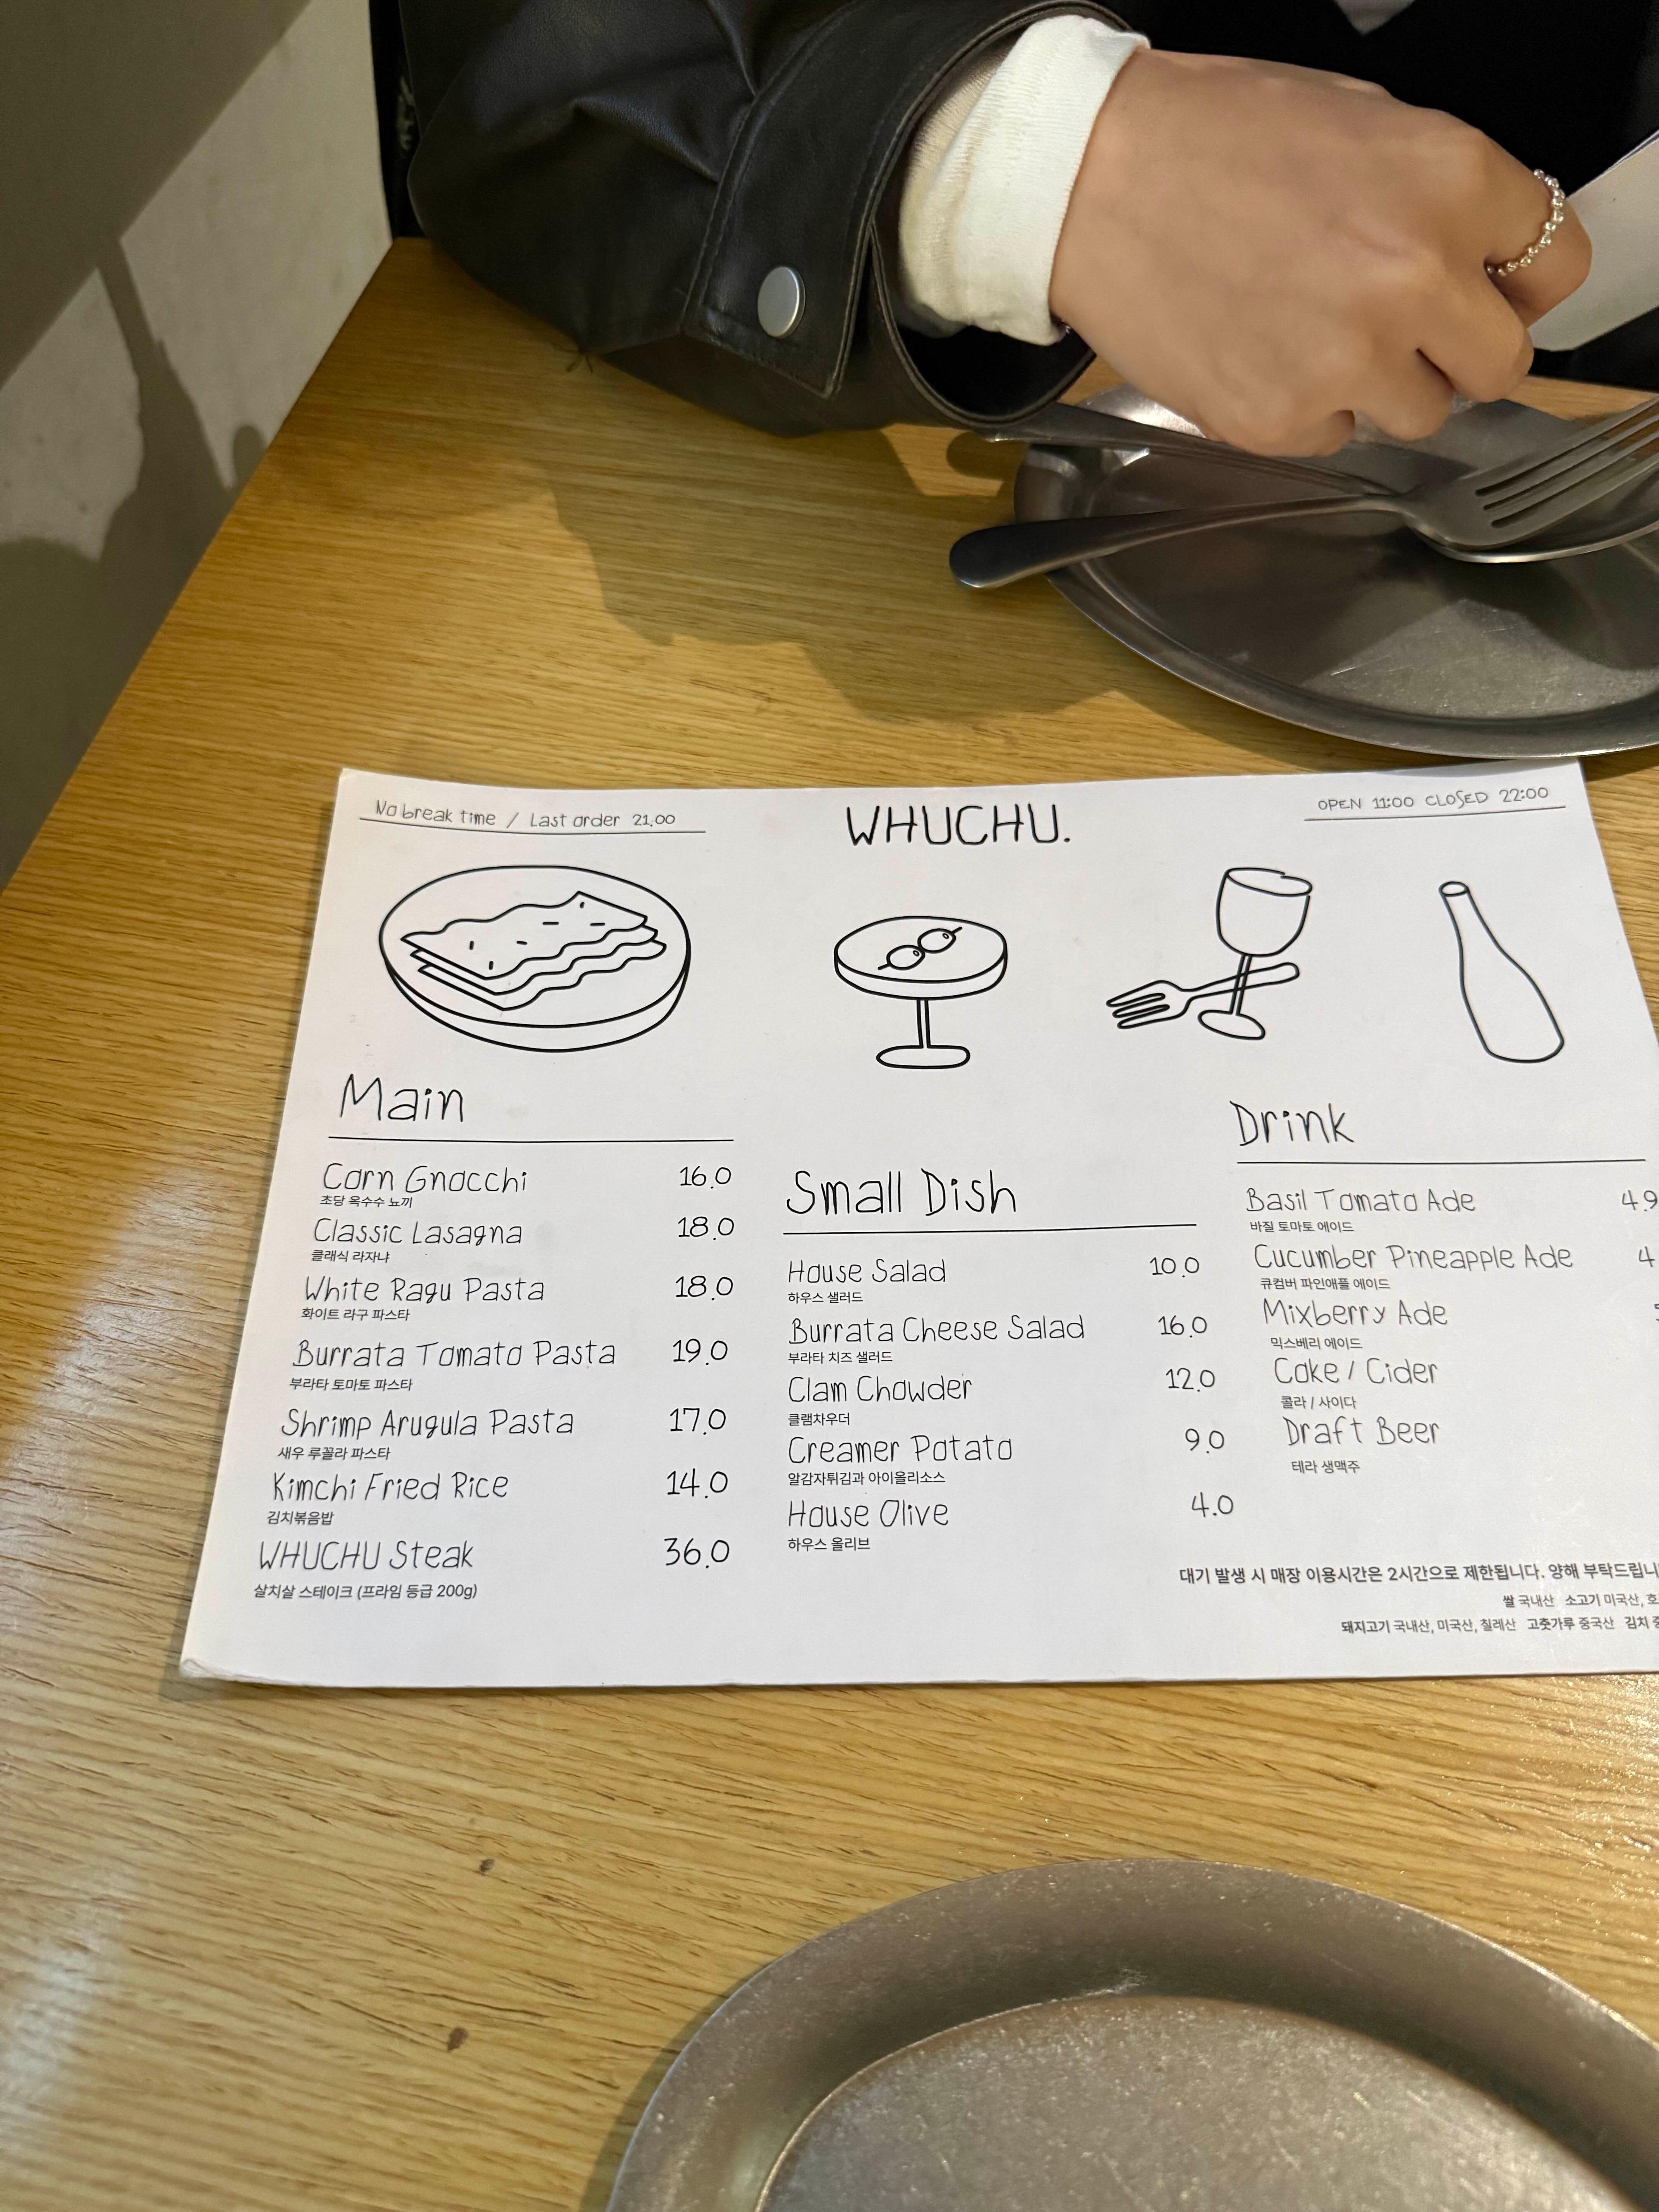 No break time / Last order 21.00
WHUCHU.
OPEN 11:00 CLOSED 22:00
Main
Corn Gnocchi 16.0
초당 옥수수 뇨끼
Classic Lasagna 18.0
클래식 라자냐
White Ragu Pasta 18.0
화이트 라구 파스타
Burrata Tomato Pasta 19.0
부라타 토마토 파스타
Shrimp Arugula Pasta 17.0
새우 루꼴라 파스타
Kimchi Fried Rice 14.0
김치볶음밥
WHUCHU Steak 36.0
살치살 스테이크 (프라임 등급 200g)
Small Dish
House Salad 10.0
하우스 샐러드
Burrata Cheese Salad 16.0
부라타 치즈 샐러드
Clam Chowder 12.0
클램차우더
Creamer Potato 9.0
알감자튀김과 아이올리소스
House Olive 4.0
하우스 올리브
Drink
Basil Tomato Ade 4.9
바질 토마토 에이드
Cucumber Pineapple Ade 4
큐컴버 파인애플 에이드
Mixberry Ade
믹스베리 에이드
Coke / Cider
콜라 / 사이다
Draft Beer
테라 생맥주
대기 발생 시 매장 이용시간은 2시간으로 제한됩니다. 양해 부탁드립니
쌀 국내산 소고기 미국산, 호
돼지고기 국내산, 미국산, 칠레산 고춧가루 중국산 김치 중